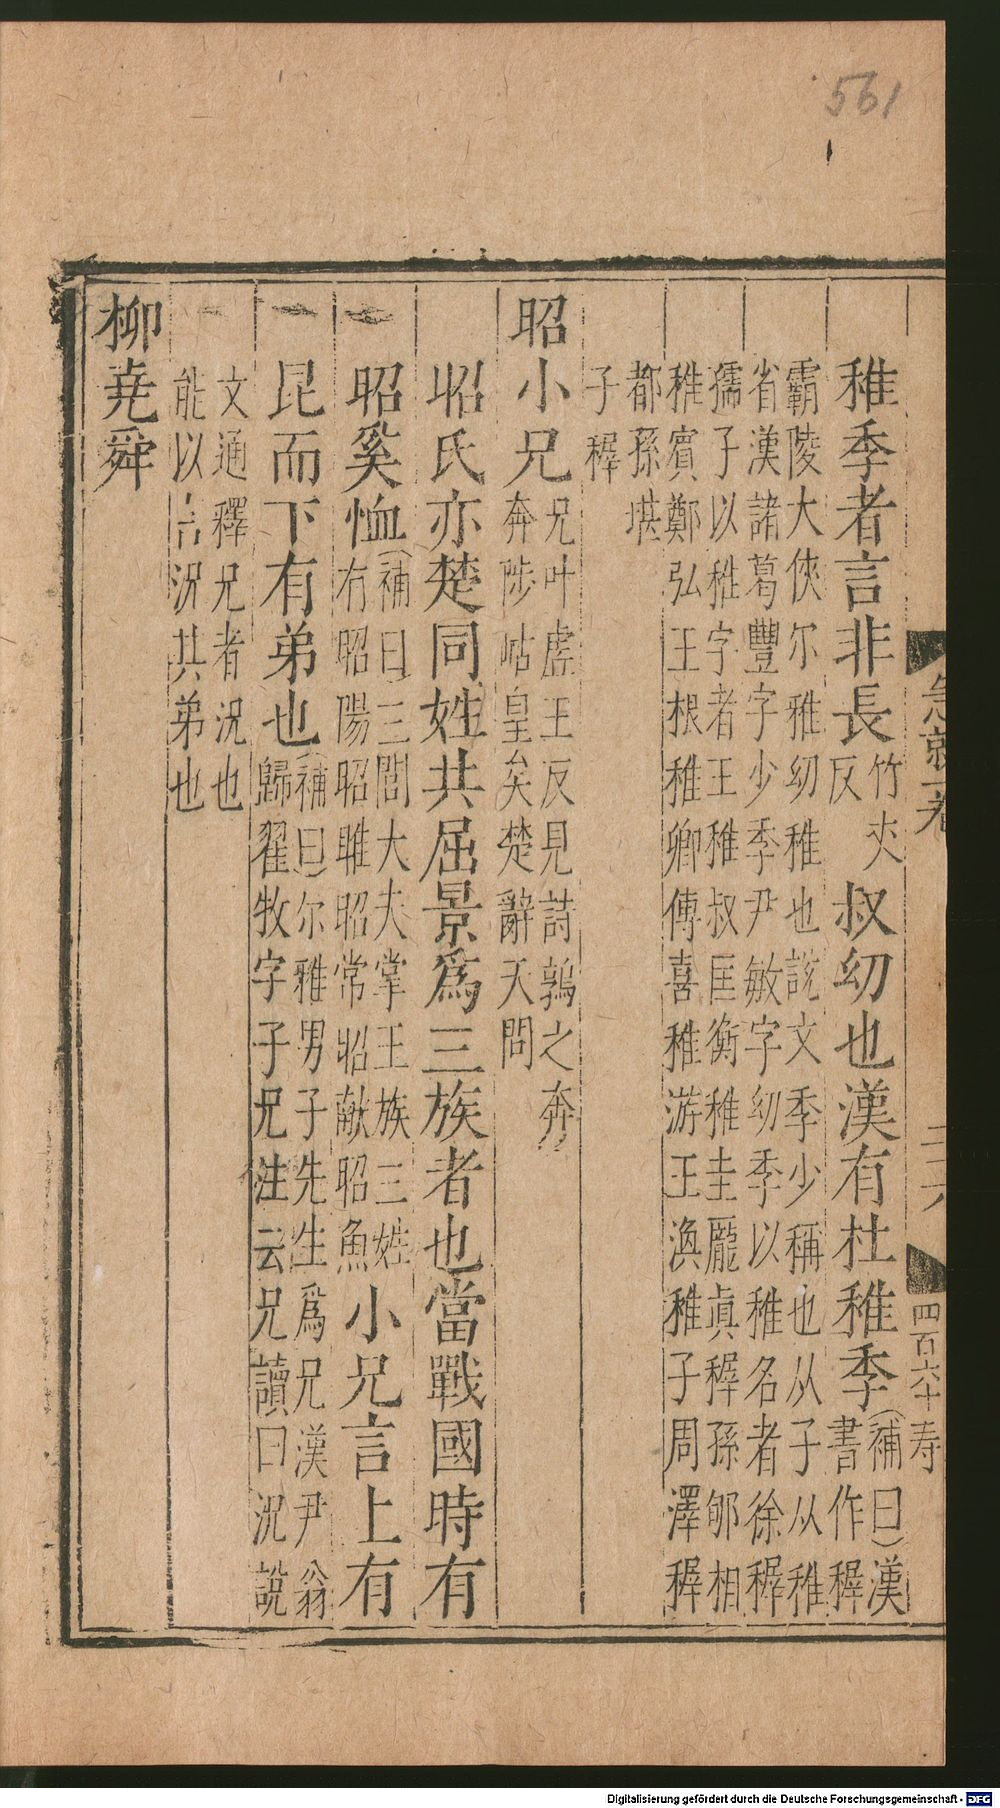 561
急就一卷
二六
四百六十 寿
稚季者言非長竹丈反叔幼也漢有杜稚季(補曰)漢書作穉
霸陵大俠尔雅幼稚也說文季少稱也从子从稚
省漢諸葛豐字少季尹敏字幼季以稚名者徐穉
孺子以稚字者王稚叔匡衡稚圭龎真穉孫郇相
稚賓鄭弘王根稚卿傅喜稚游王渙稚子周澤穉
都孫堪
子穉
昭小兄兄叶虛王反見詩鶉之奔奔陟岵皇矣楚辭天問
昭氏亦楚同姓共屈景為三族者也當戰國時有
昭奚恤(補曰)三閭大夫掌王族三姓有昭陽昭雎昭常昭獻昭魚小兄言上有
昆而下有弟也(補曰)尔雅男子先生為兄漢尹翁歸翟牧字子兄注云兄讀曰況說
文通釋兄者況也
能以言況其弟也
柳堯舜
Digitalisierung gefördert durch die Deutsche Forschungsgemeinschaft - DFG